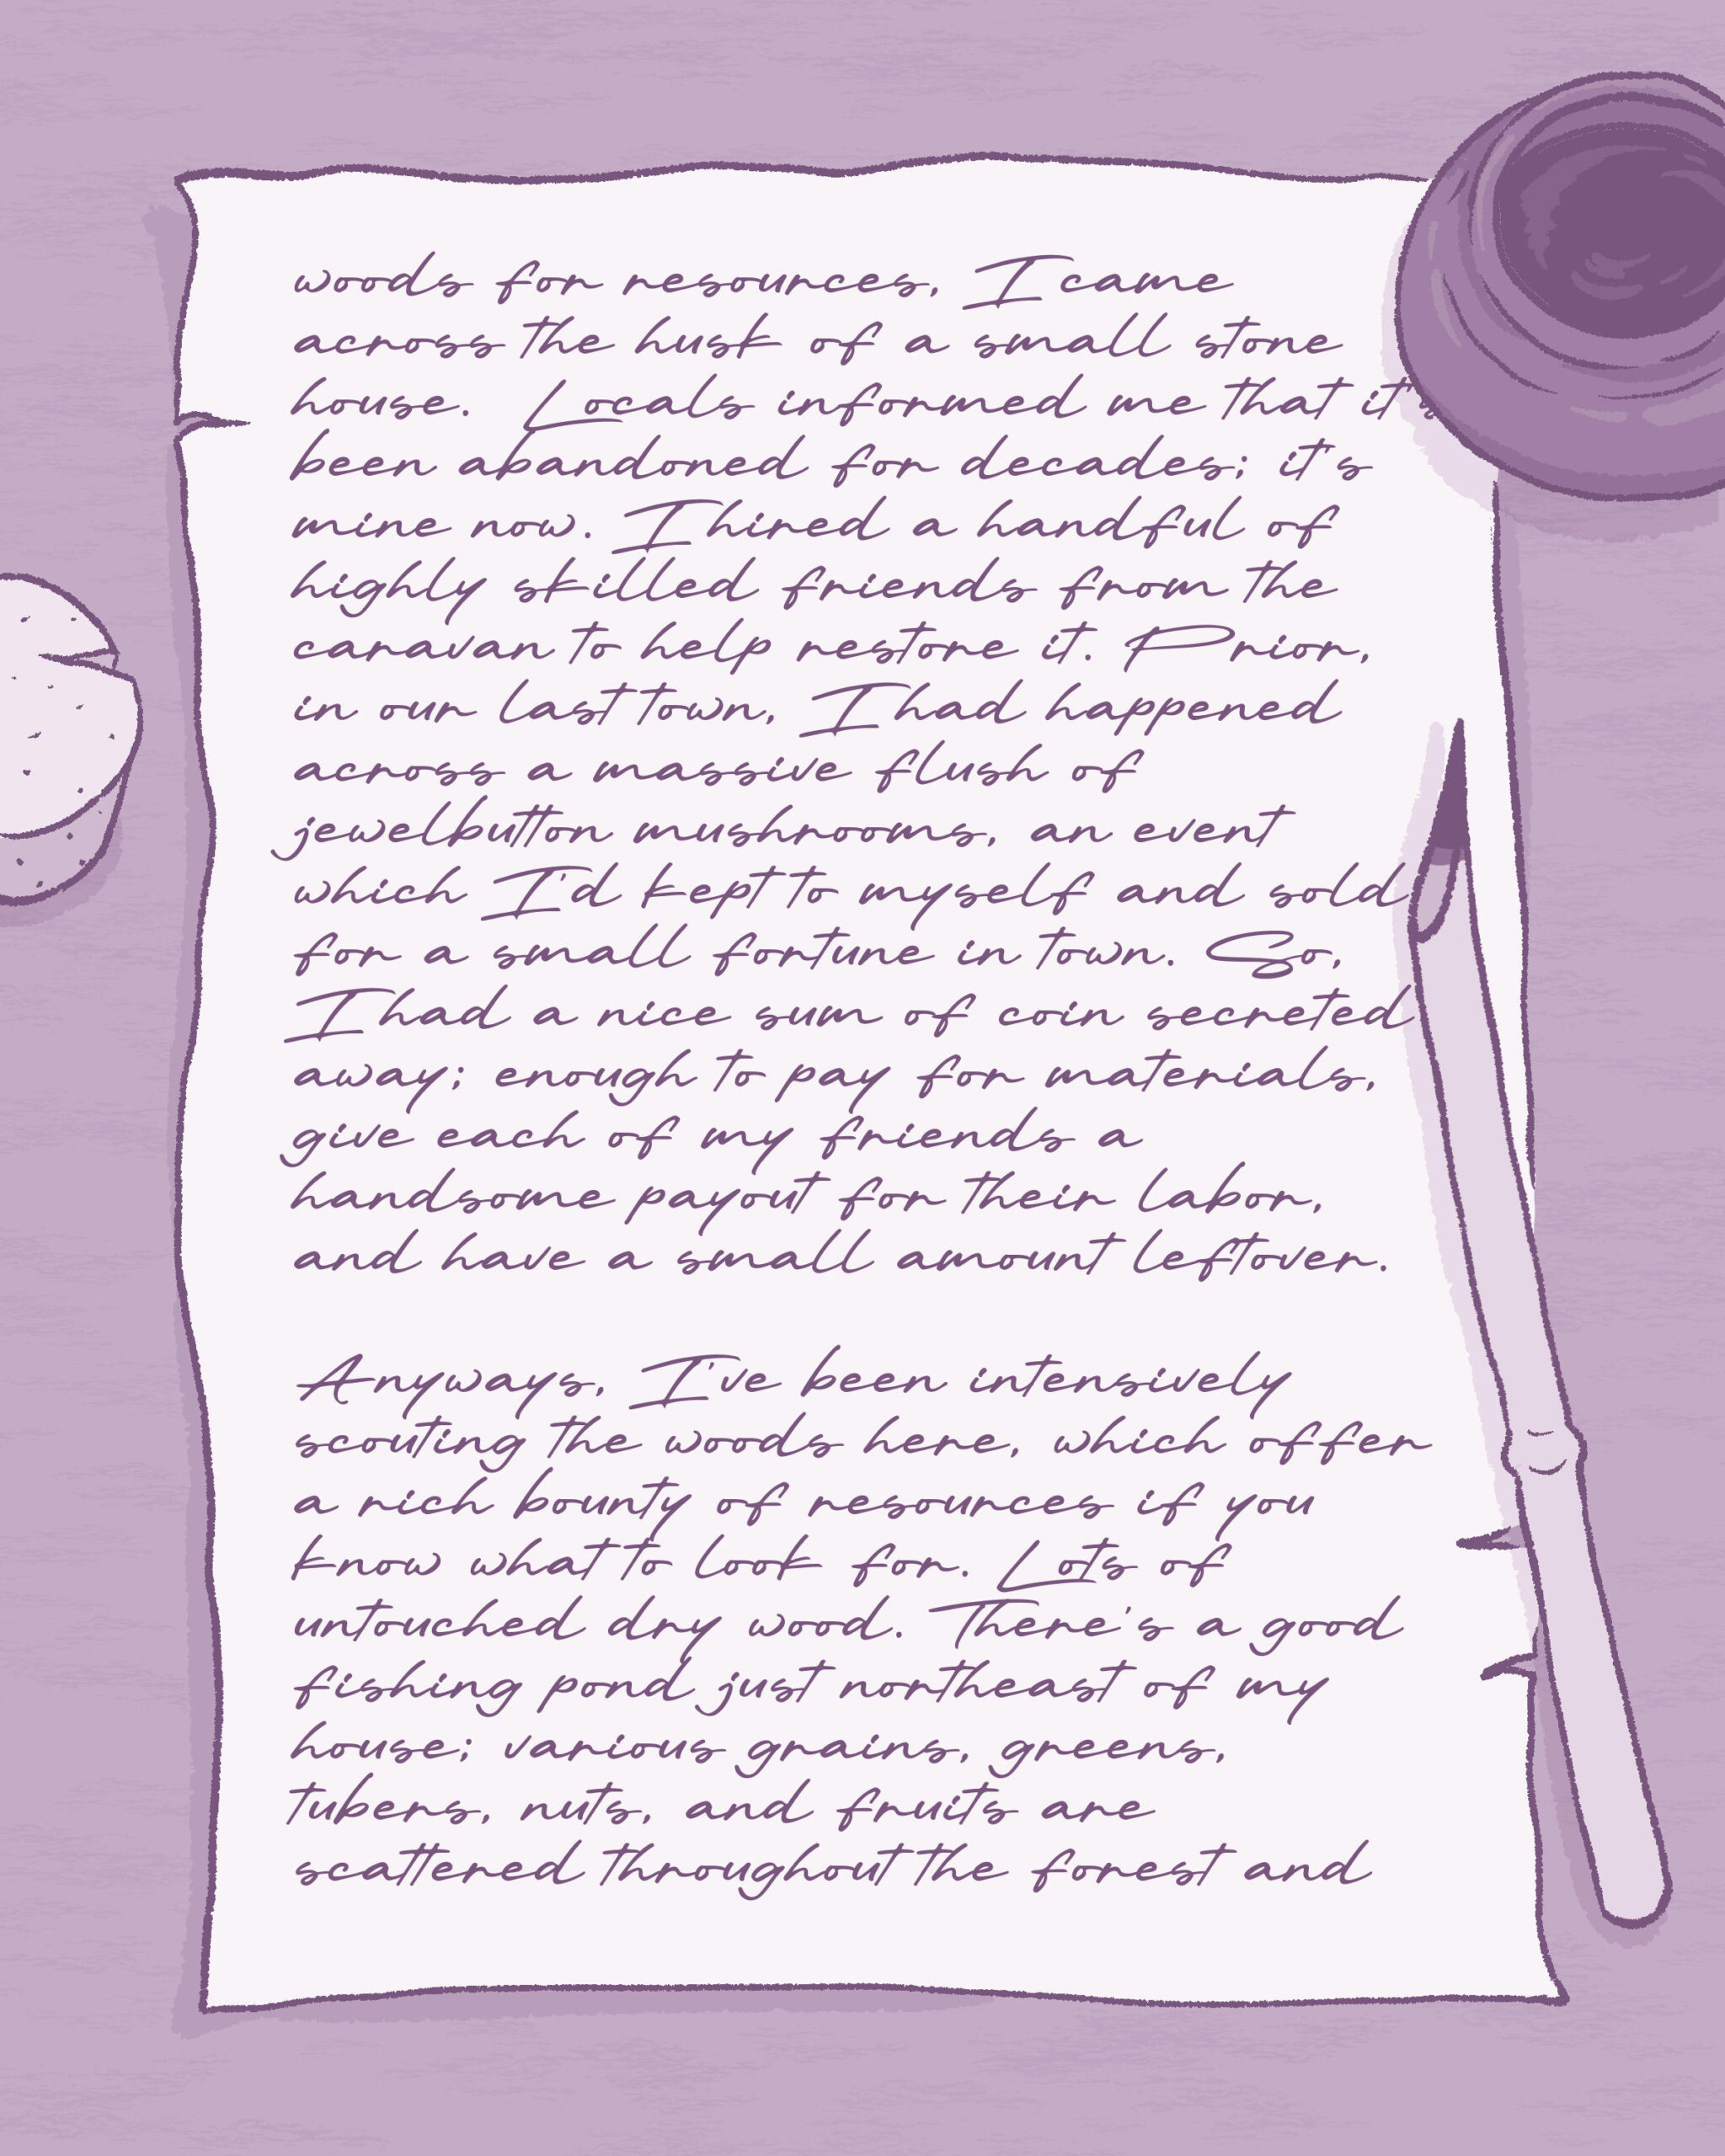 woods for resources, I came
across the husk of a small stone
house. Locals informed me that it's
been abandoned for decades; it's
mine now. I hired a handful of
highly skilled friends from the
caravan to help restore it. Prior,
in our last town, I had happened
across a massive flush of
jewelbutton mushrooms, an event
which I'd kept to myself and sold
for a small fortune in town. So,
I had a nice sum of coin secreted
away; enough to pay for materials,
give each of my friends a
handsome payout for their labor,
and have a small amount leftover.
Anyways, I've been intensively
scouting the woods here, which offer
a rich bounty of resources if you
know what to look for. Lots of
untouched dry wood. There's a good
fishing pond just northeast of my
house; various grains, greens,
tubers, nuts, and fruits are
scattered throughout the forest and